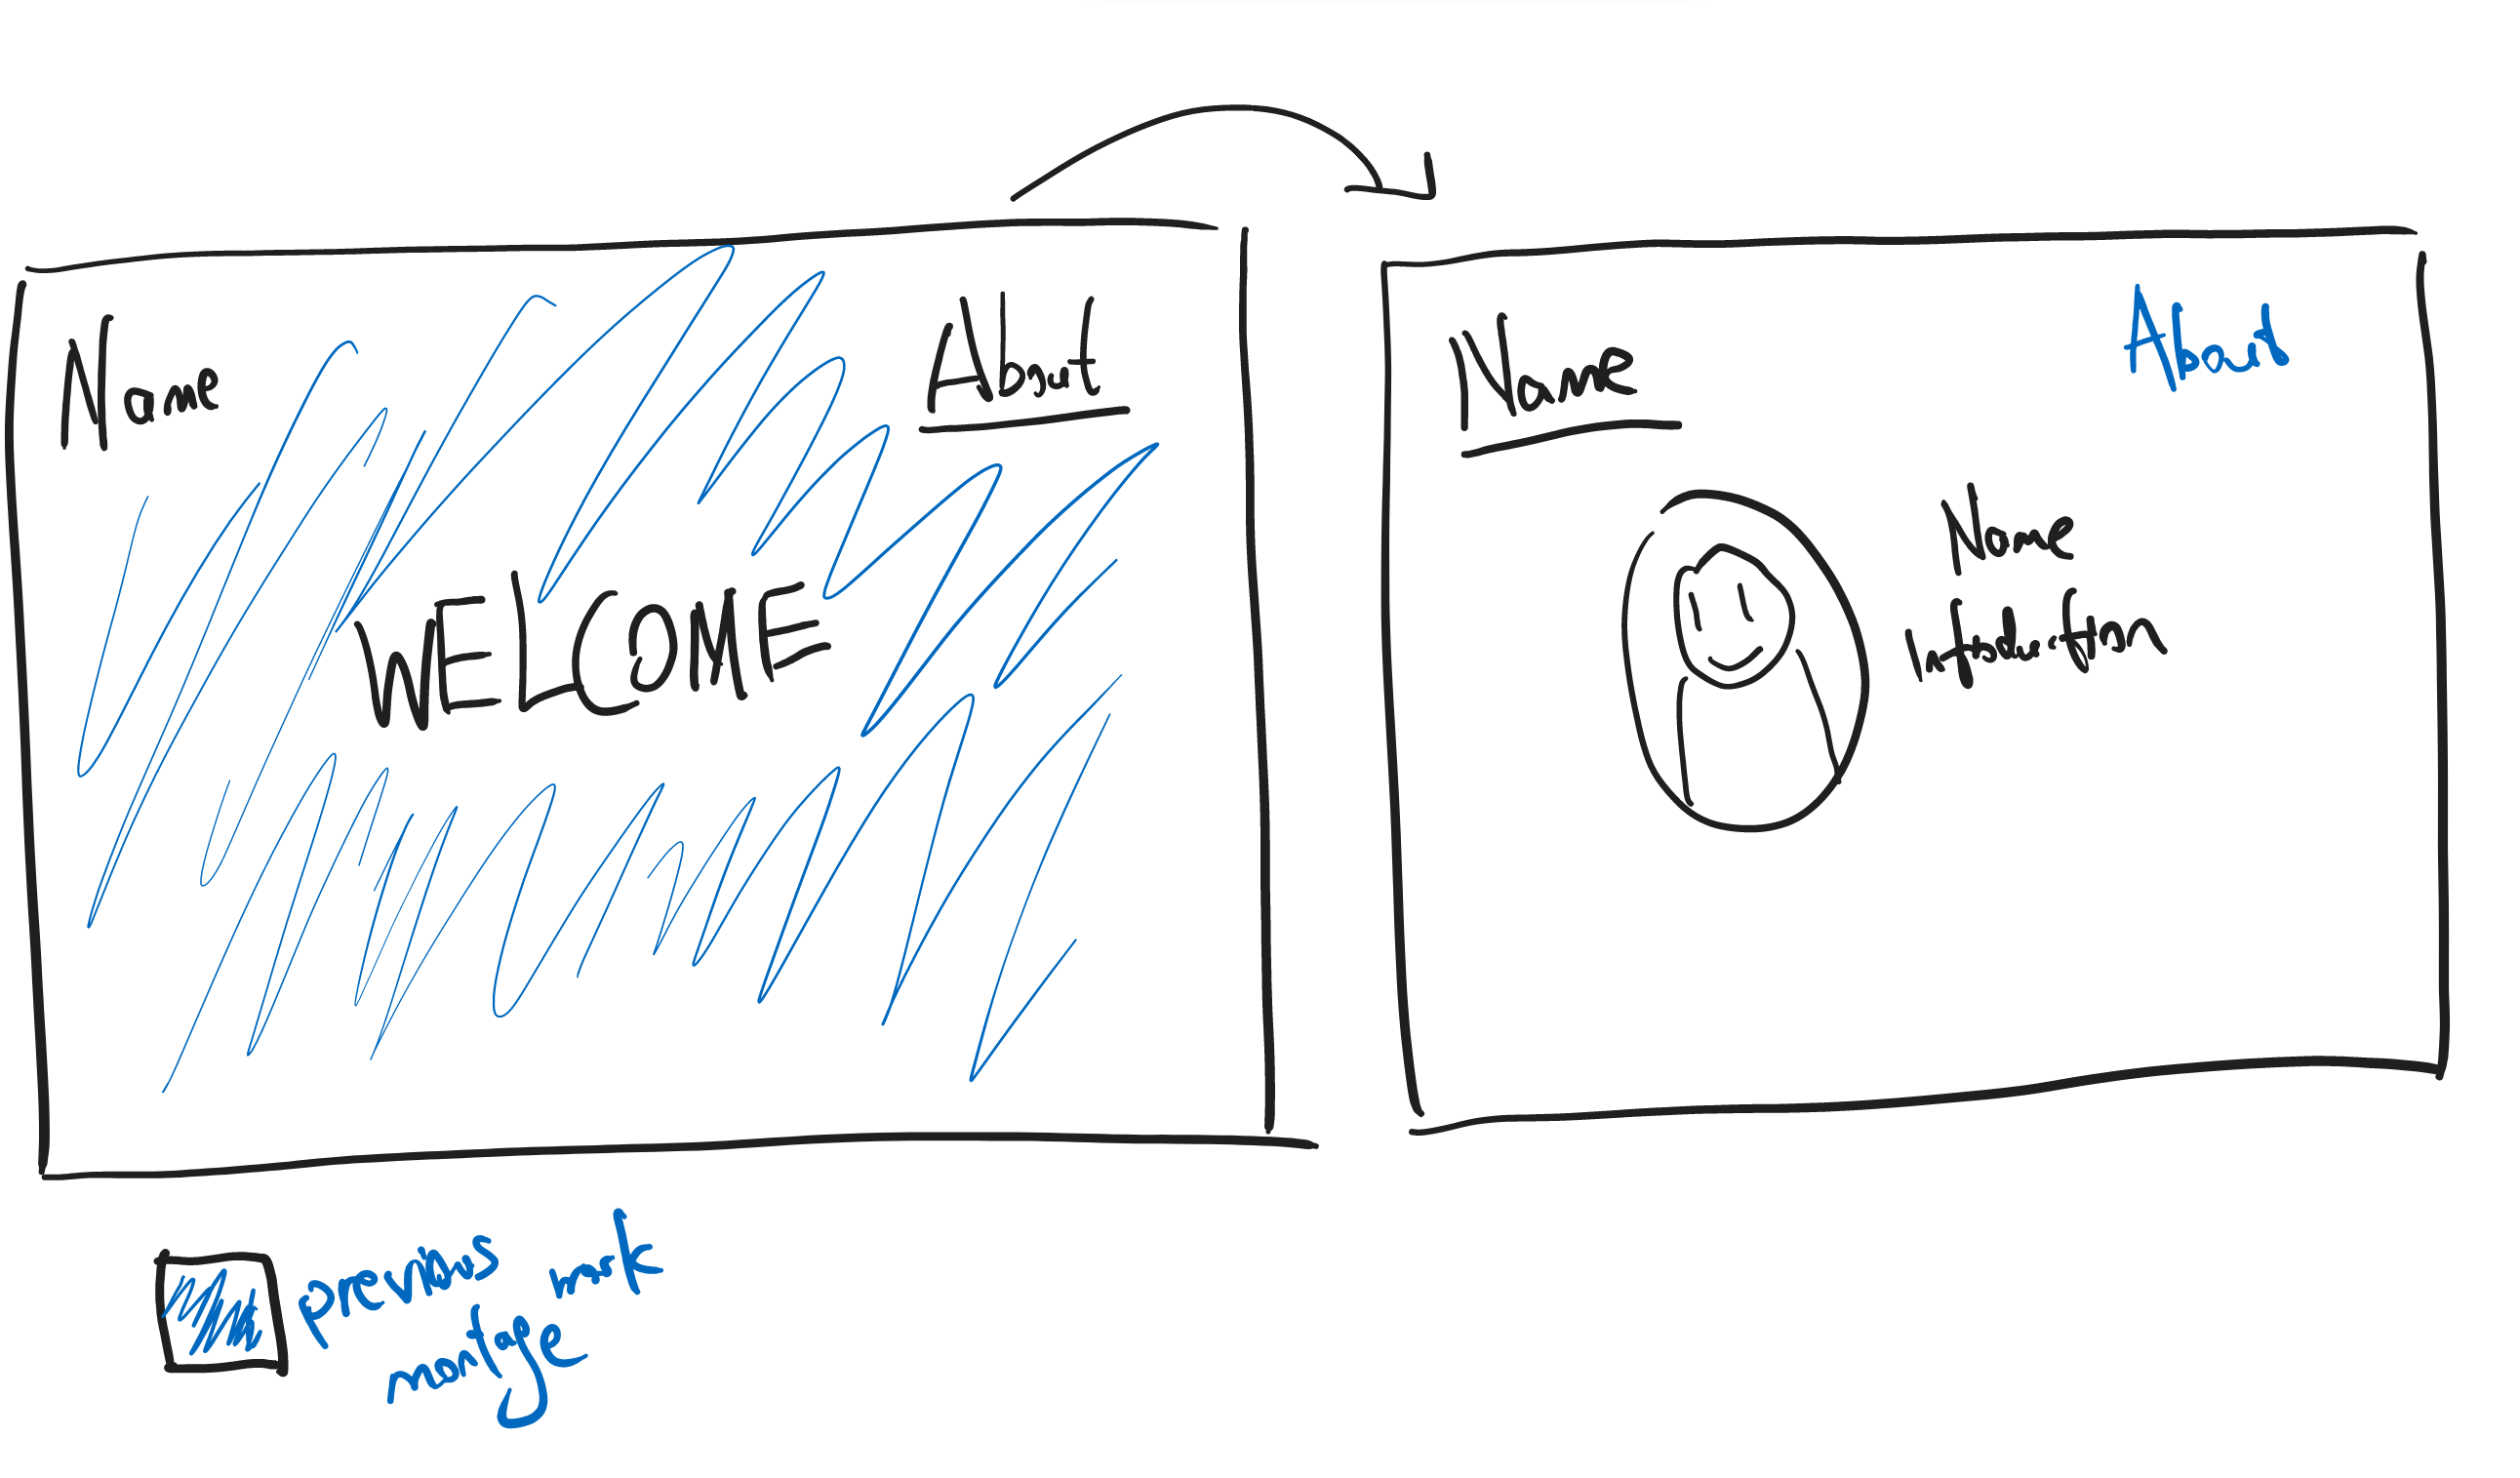 Name
About
WELCOME
Name
About
Name
Introduction
previous work
montage